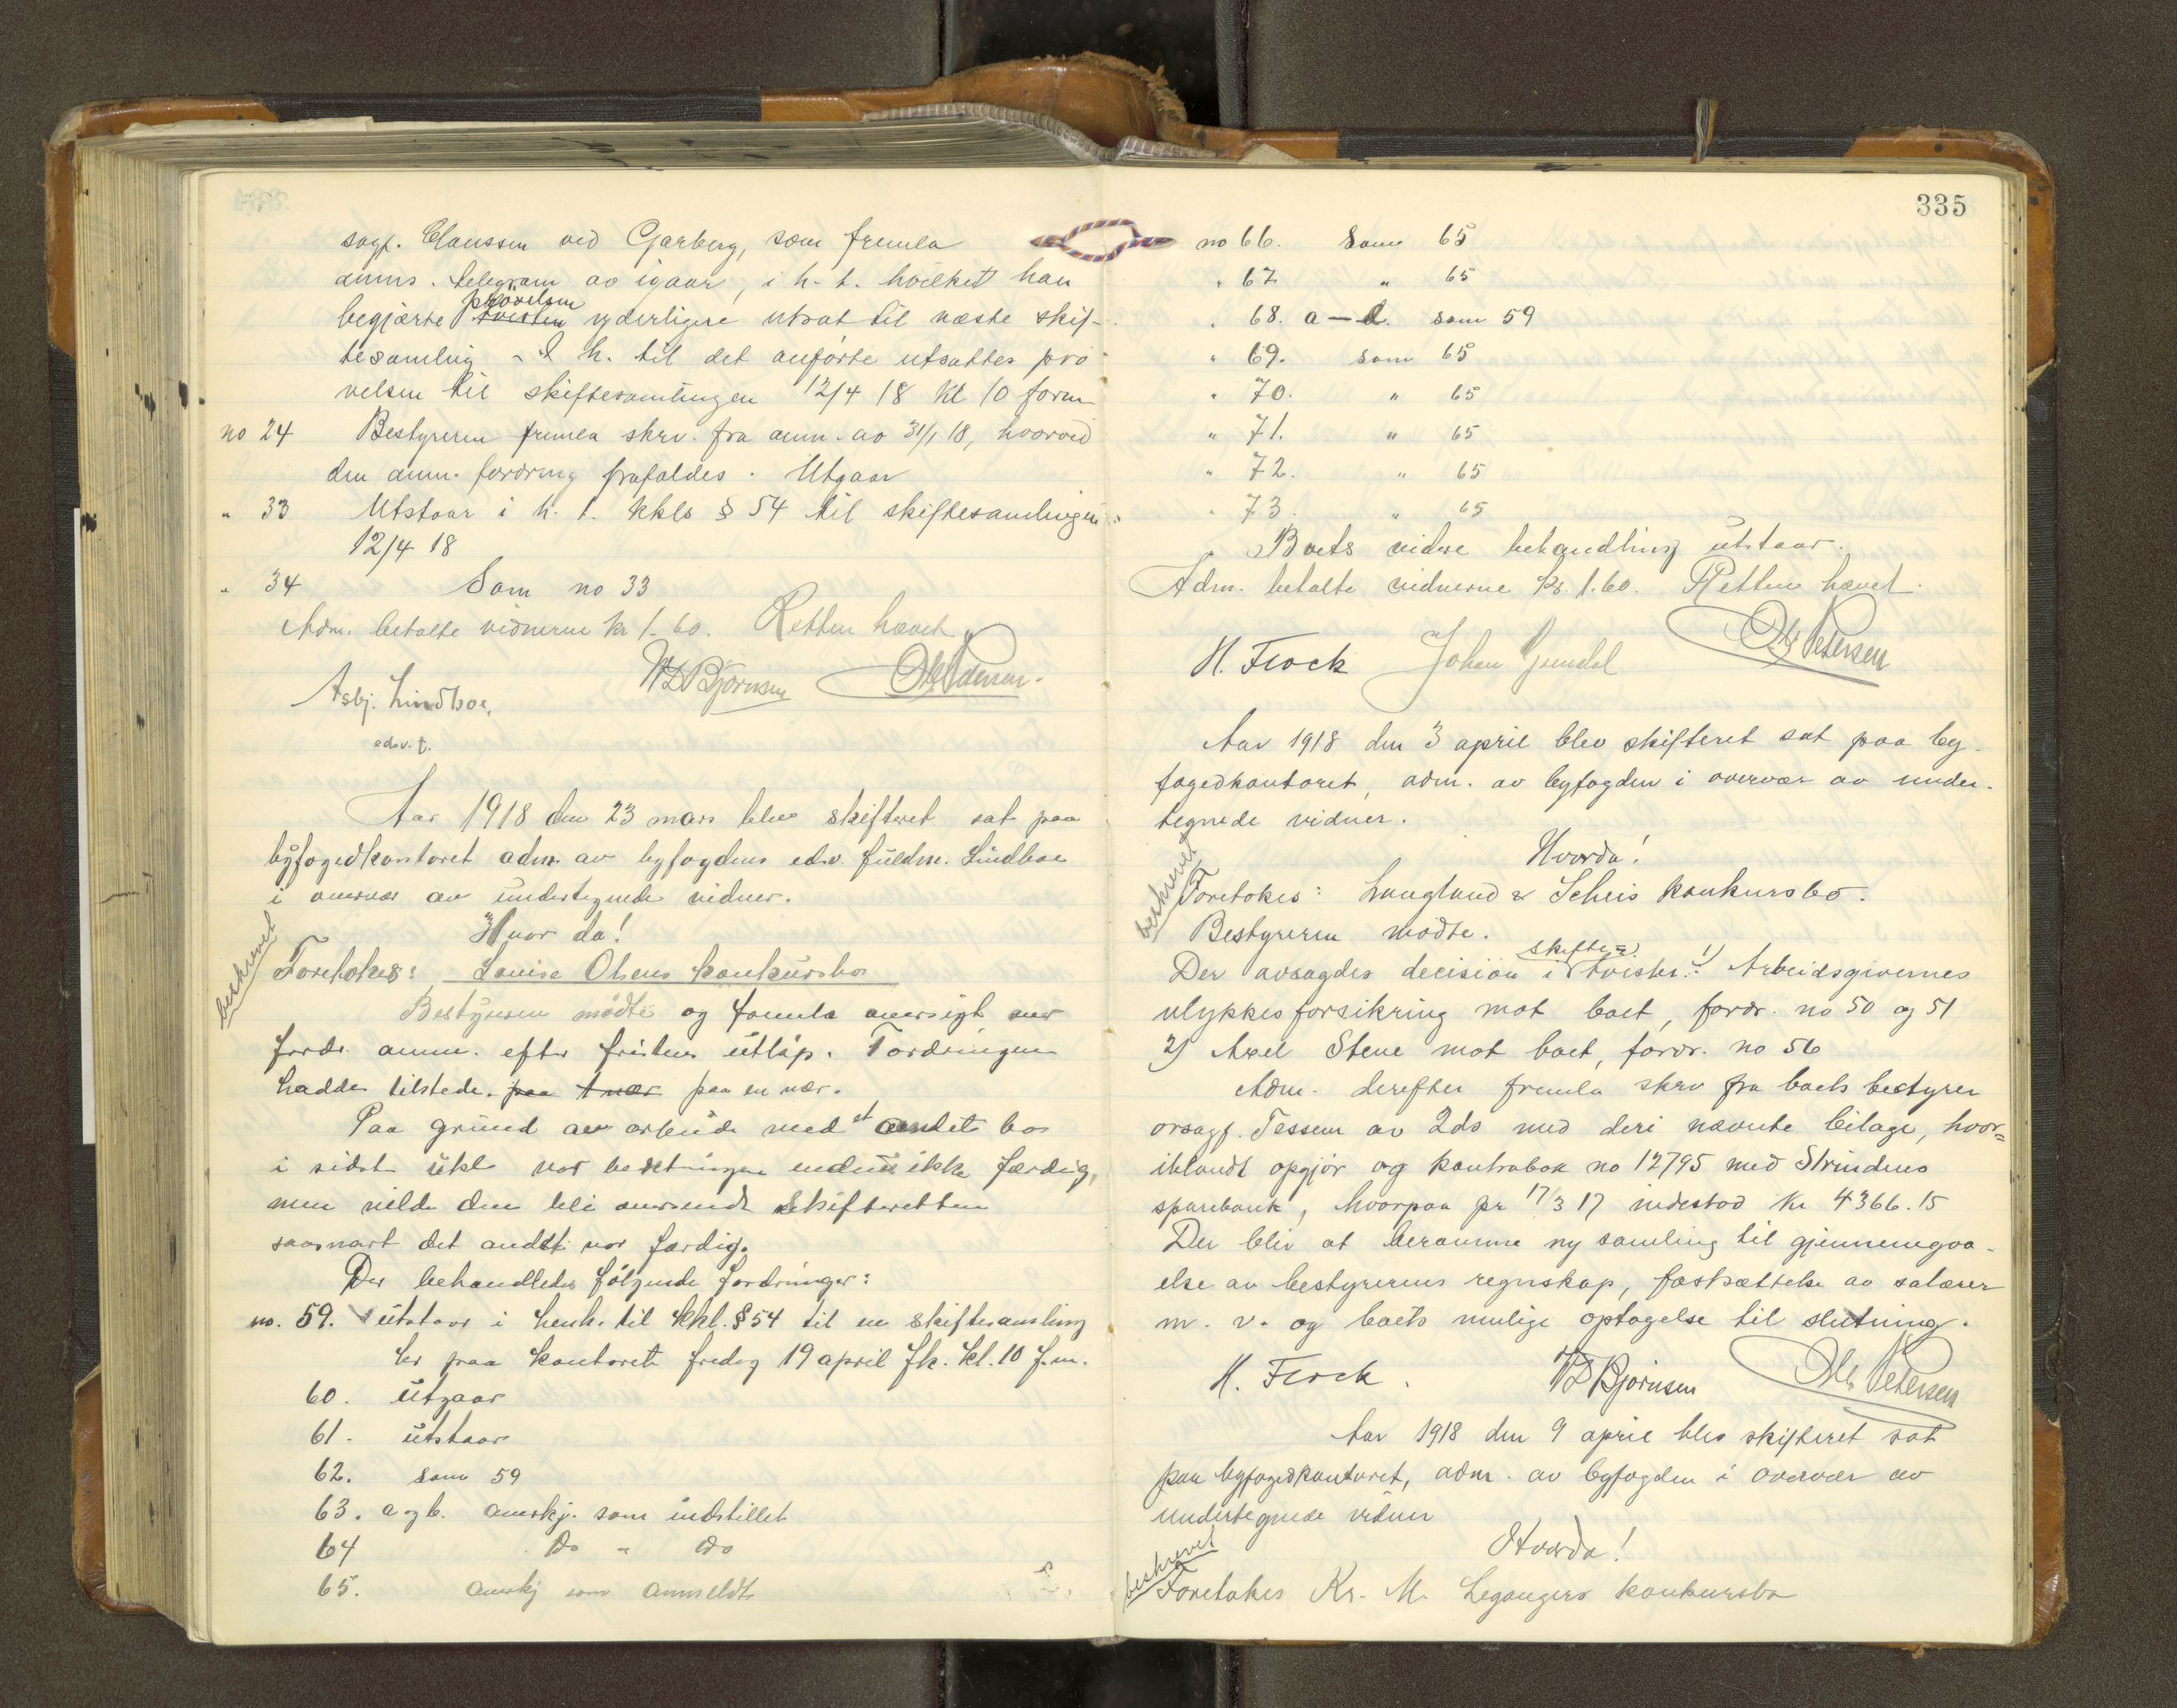 sagf. Claussen ved Garberg, som fremla
anms. telegram av igaar, i h. t. hvilket han
begjærte prøvelsen tvisten yderligere utsat til næste skif-
tesamling - I h. til det anførte utsattes prø
velsen til skiftesamlingen 12/4 18 kl 10 form
no 24 Bestyreren fremla skrv. fra anm. av 31/1 18, hvorved
den anm. fordring frafaldes. Utgaar
" 33 Utstaar i h. t. kkls § 54 til skiftesamlingen
12/4 18
" 34 Som no 33
Adm. betalte vidnerne kr 1.60. Retten hævet
WD Bjørnsen Ole Petersen
Asbj. Lindboe,
edsv. f.
Aar 1918 den 23 mars blev skifteret sat paa
byfogedkontoret adm. av byfogdens edsv. fuldm. Lindboe
i overvær av undertegnede vidner.
Hvor da!
beskrevet
Foretokes: Louise Olsens konkursbo
Bestyreren mødte og fremla oversigt over
fordr. anm. efter fristens utløp. Fordringen
hadde tilstede. paa tvær paa en nær.
Paa grund av arbeide med et andet bo
i sidste uke var beretningen endnu ikke færdig,
men vilde den bli oversendt skifteretten
saasnart det andet var færdig.
Der behandledes følgende fordringer:
no. 59. utstaar i henh. til kkl. § 54 til en skiftesamling
her paa kontoret fredag 19 april fk. kl. 10 f.m.
60. utgaar
61. utstaar
62. som 59
63. a og b. anerkj. som indstillet
64 Do " Do
65. anerkj som anmeldt
335
no 66. Som 65
" 67 " 65
" 68. a-d. som 59
" 69. som 65
" 70. " 65
" 71. " 65
" 72. " 65
" 73. " 65
Boets videre behandling utstaar.
Adm. betalte vidnerne kr. 1.60. Retten hævet.
H. Flock Johan Ole Petersen
Aar 1918 den 3 april blev skifteret sat paa by-
fogedkontoret, adm. av byfogden i overvær av under-
tegnede vidner.
Hvorda!
beskrevet
Foretokes: Langland & Scheis konkursbo.
Bestyreren mødte.
Der avsagdes decision i skifte= tvister: 1) Arbeidsgivernes
ulykkesforsikring mot boet, fordr. no 50 og 51
2) Axel Stene mot boet, fordr. no 56
Adm. derefter fremla skrv fra boets bestyrer
orsagf. Tessem av 2ds med deri nævnte bilage, hvor=
iblandt opgjør og kontrabok no 12795 med Strindens
sparebank, hvorpaa pr 17/3 17 indestod kr 4366.15
Der blir at beramme ny samling til gjennemgaa-
else av bestyrerens regnskap, fastsættelse av salærer
m. v. og boets mulige optagelse til slutning.
H. Flock. WD Bjørnsen Ole Petersen
Aar 1918 den 9 april blev skifteret sat
paa byfogedkontoret, adm. av byfogden i overvær av
undertegnede vidner
Hvorda!
beskrevet
Foretokes Kr. M. Legangers konkursbo